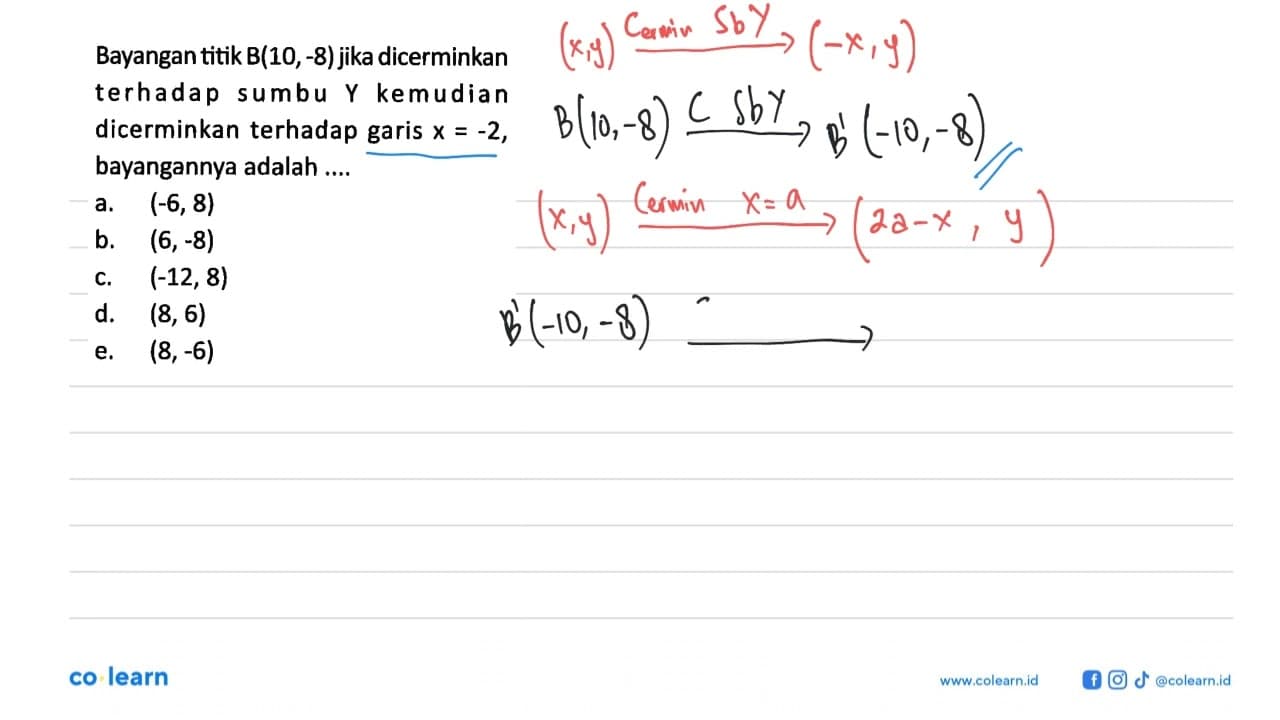 Bayangan titik B(10, -8) jika dicerminkan
terhadap sumbu Y kemudian
dicerminkan terhadap garis x = -2,
bayangannya adalah ....
a. (-6, 8)
b. (6, -8)
c. (-12, 8)
d. (8, 6)
e. (8, -6)
(x,y) Cermin SbY → (-x, y)
B(10,-8) C SbY → B'(-10,-8)
(x,y) Cermin x=a → (2a-x, y)
B'(-10,-8) →
co learn
www.colearn.id
@colearn.id